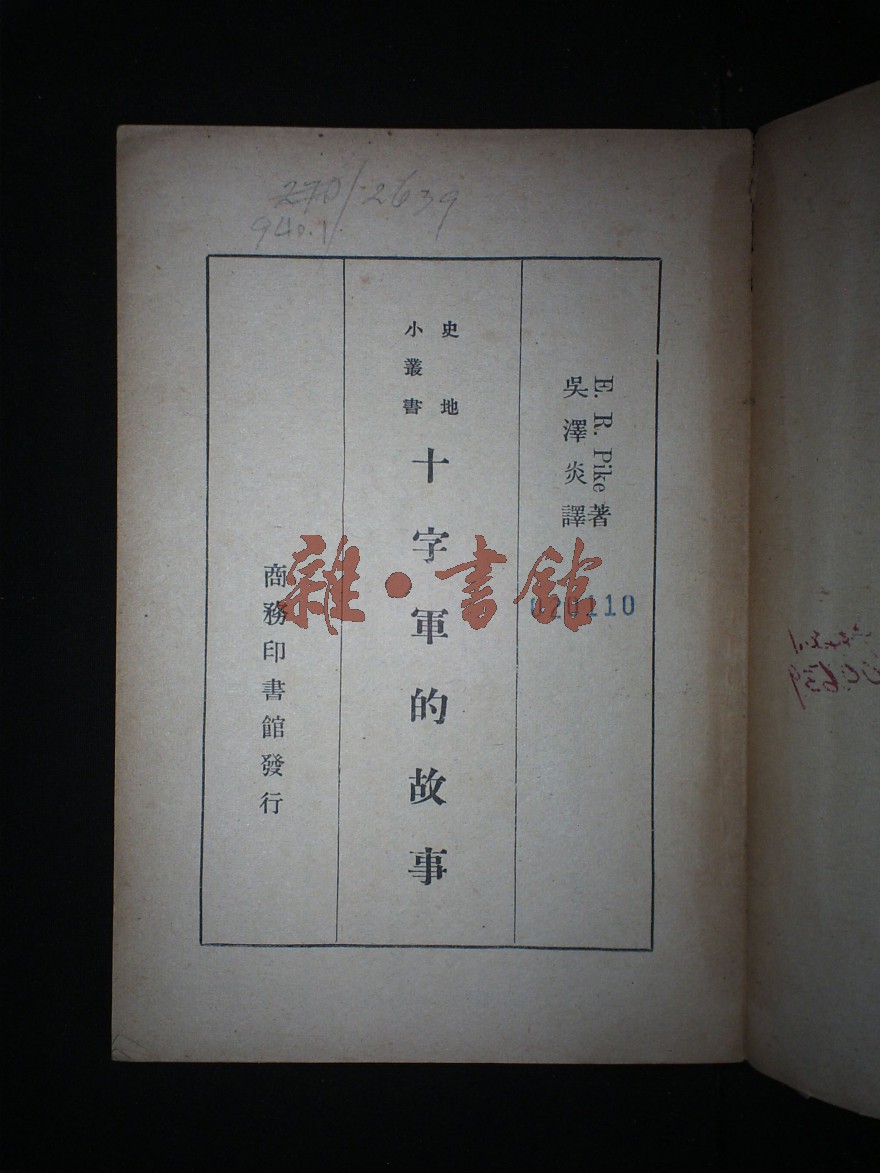 270/2639
940.1
E. R. Pike 著
吳澤炎譯
020110
史地
小叢書
十字軍的故事
商務印書館發行
雜·書館